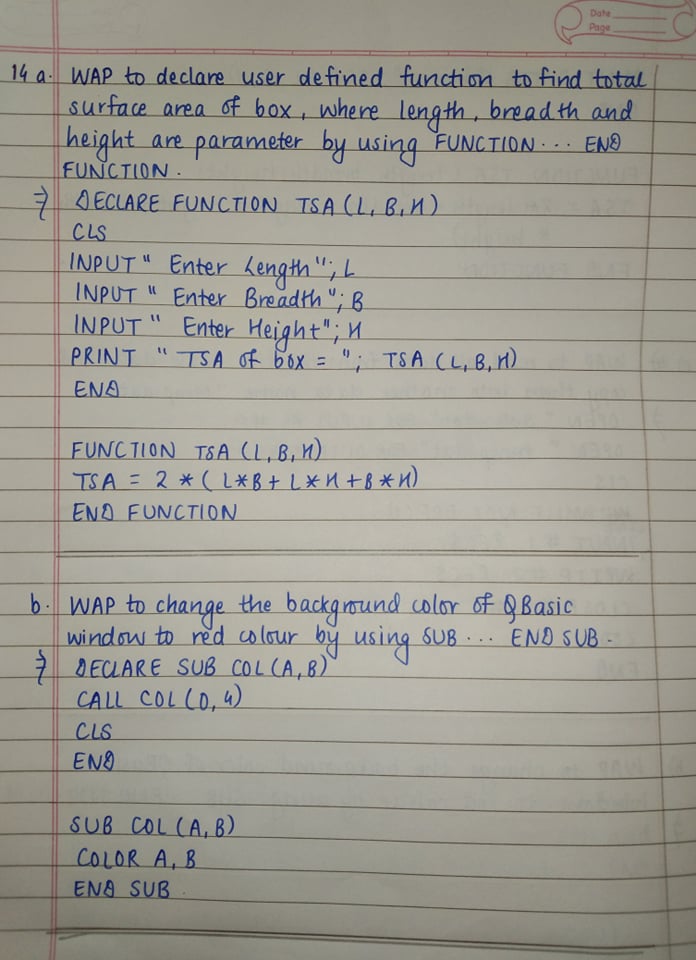 Date
Page
14 a. WAP to declare user defined function to find total
surface area of box, where length, breadth and
height are parameter by using FUNCTION ... END
FUNCTION.
⇒ DECLARE FUNCTION TSA (L, B, H)
CLS
INPUT " Enter Length"; L
INPUT " Enter Breadth"; B
INPUT " Enter Height"; H
PRINT " TSA of box = "; TSA (L, B, H)
END
FUNCTION TSA (L, B, H)
TSA = 2 * ( L*B + L*H + B*H)
END FUNCTION
b. WAP to change the background color of QBasic
window to red colour by using SUB ... END SUB.
⇒ DECLARE SUB COL (A, B)
CALL COL (0, 4)
CLS
END
SUB COL (A, B)
COLOR A, B
END SUB.